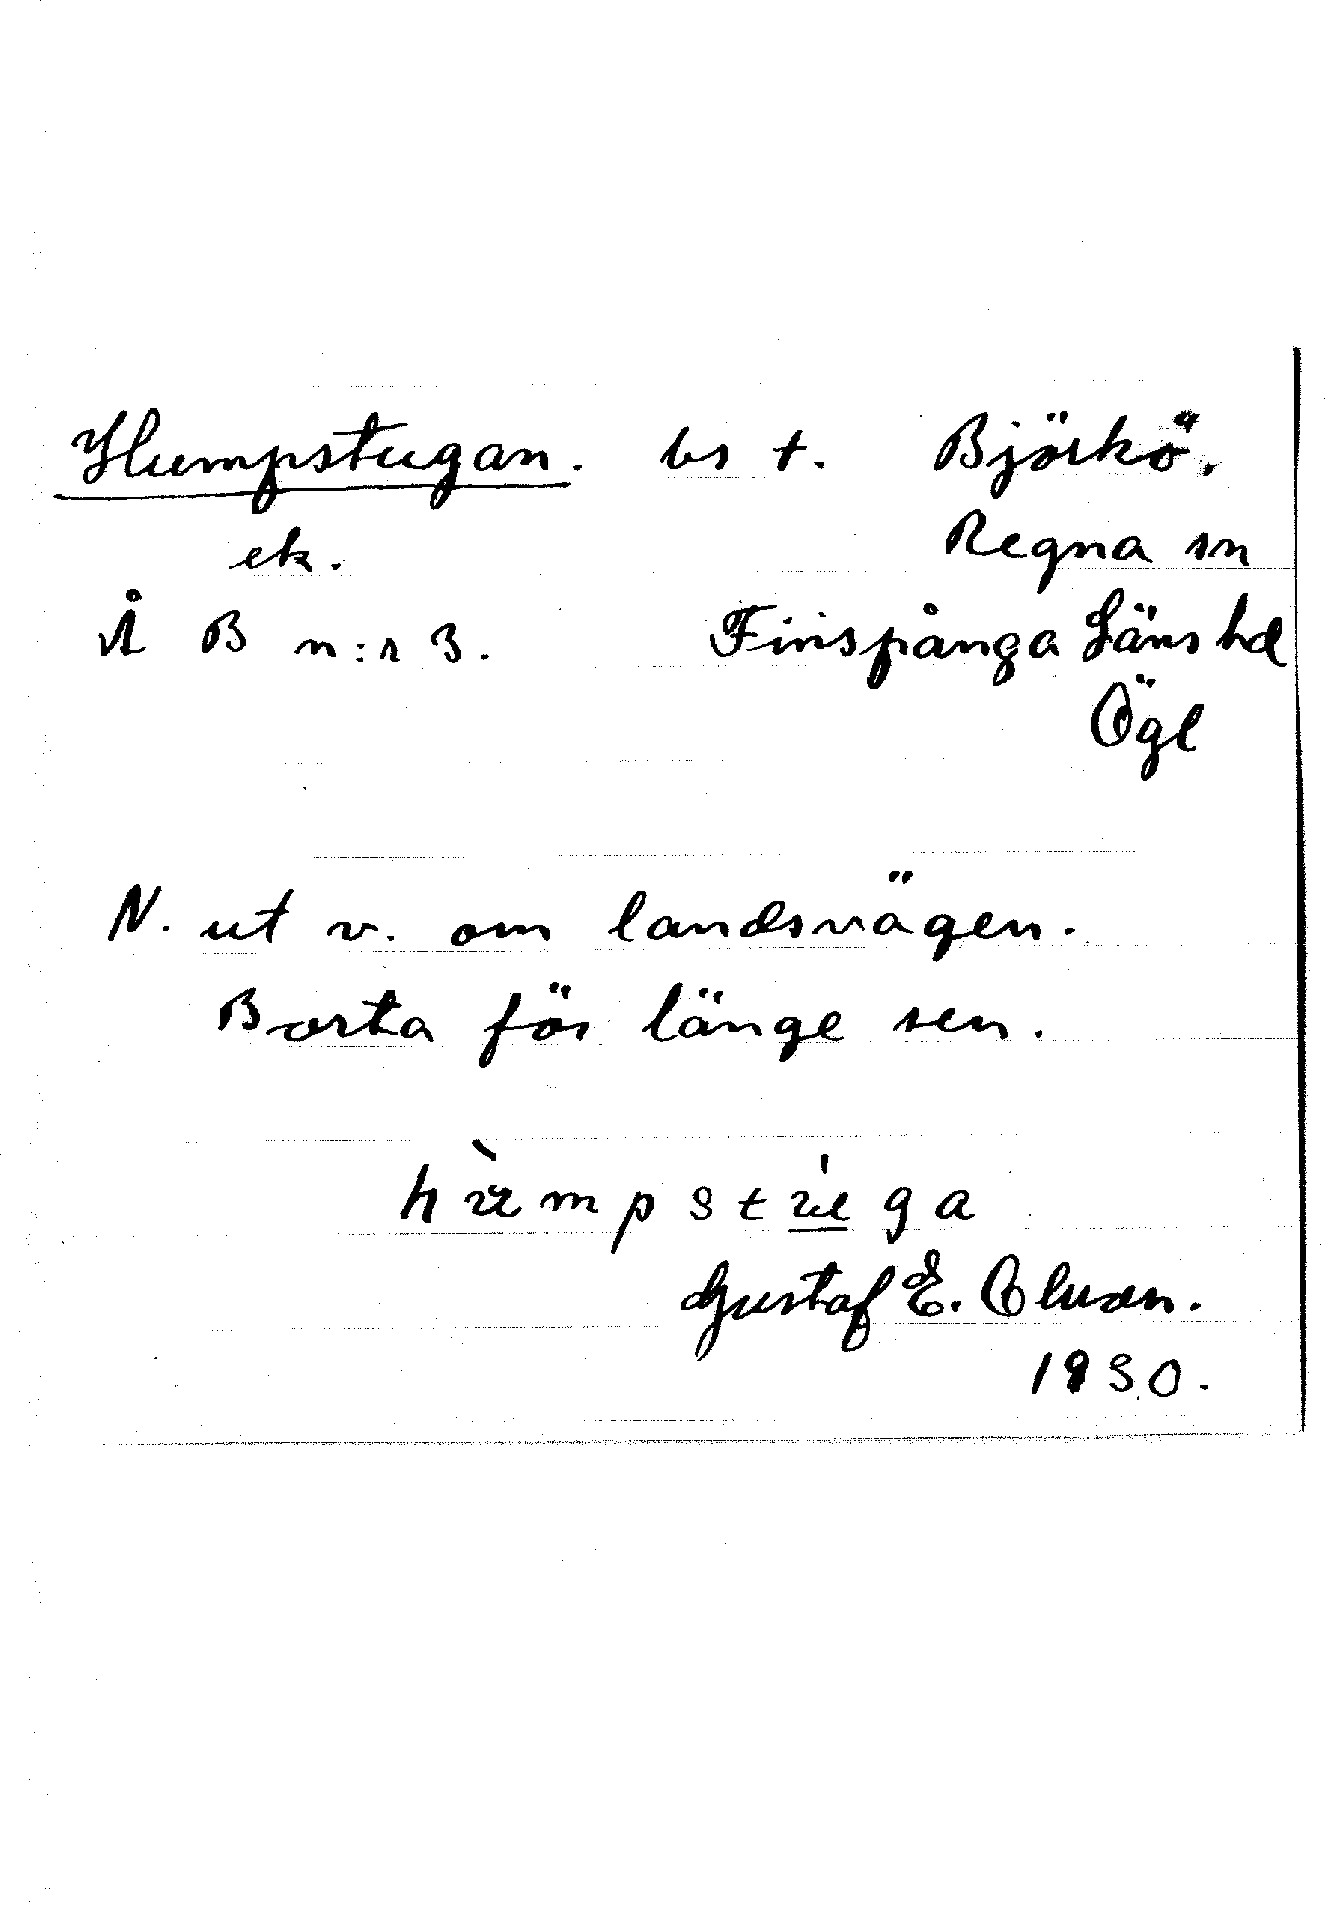 Humpstugan. bs t. Björkö.
ek. Regna sn
Å B n:r 3. Finspånga Läns hd
Ögl
N. ut v. om landsvägen.
Borta för länge sen.
Gustaf E. Olsson.
1930.